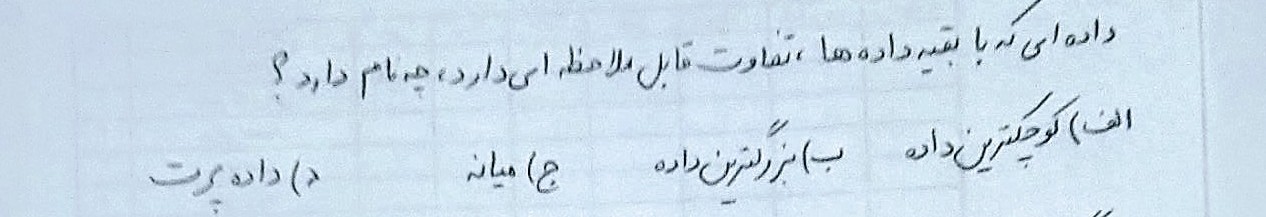 داده ای که با بقیه داده ها ، تفاوت قابل ملاحظه ای دارد ، چه نام دارد ؟
الف) کوچکترین داده ب) بزرگترین داده ج) میانه د) داده پرت